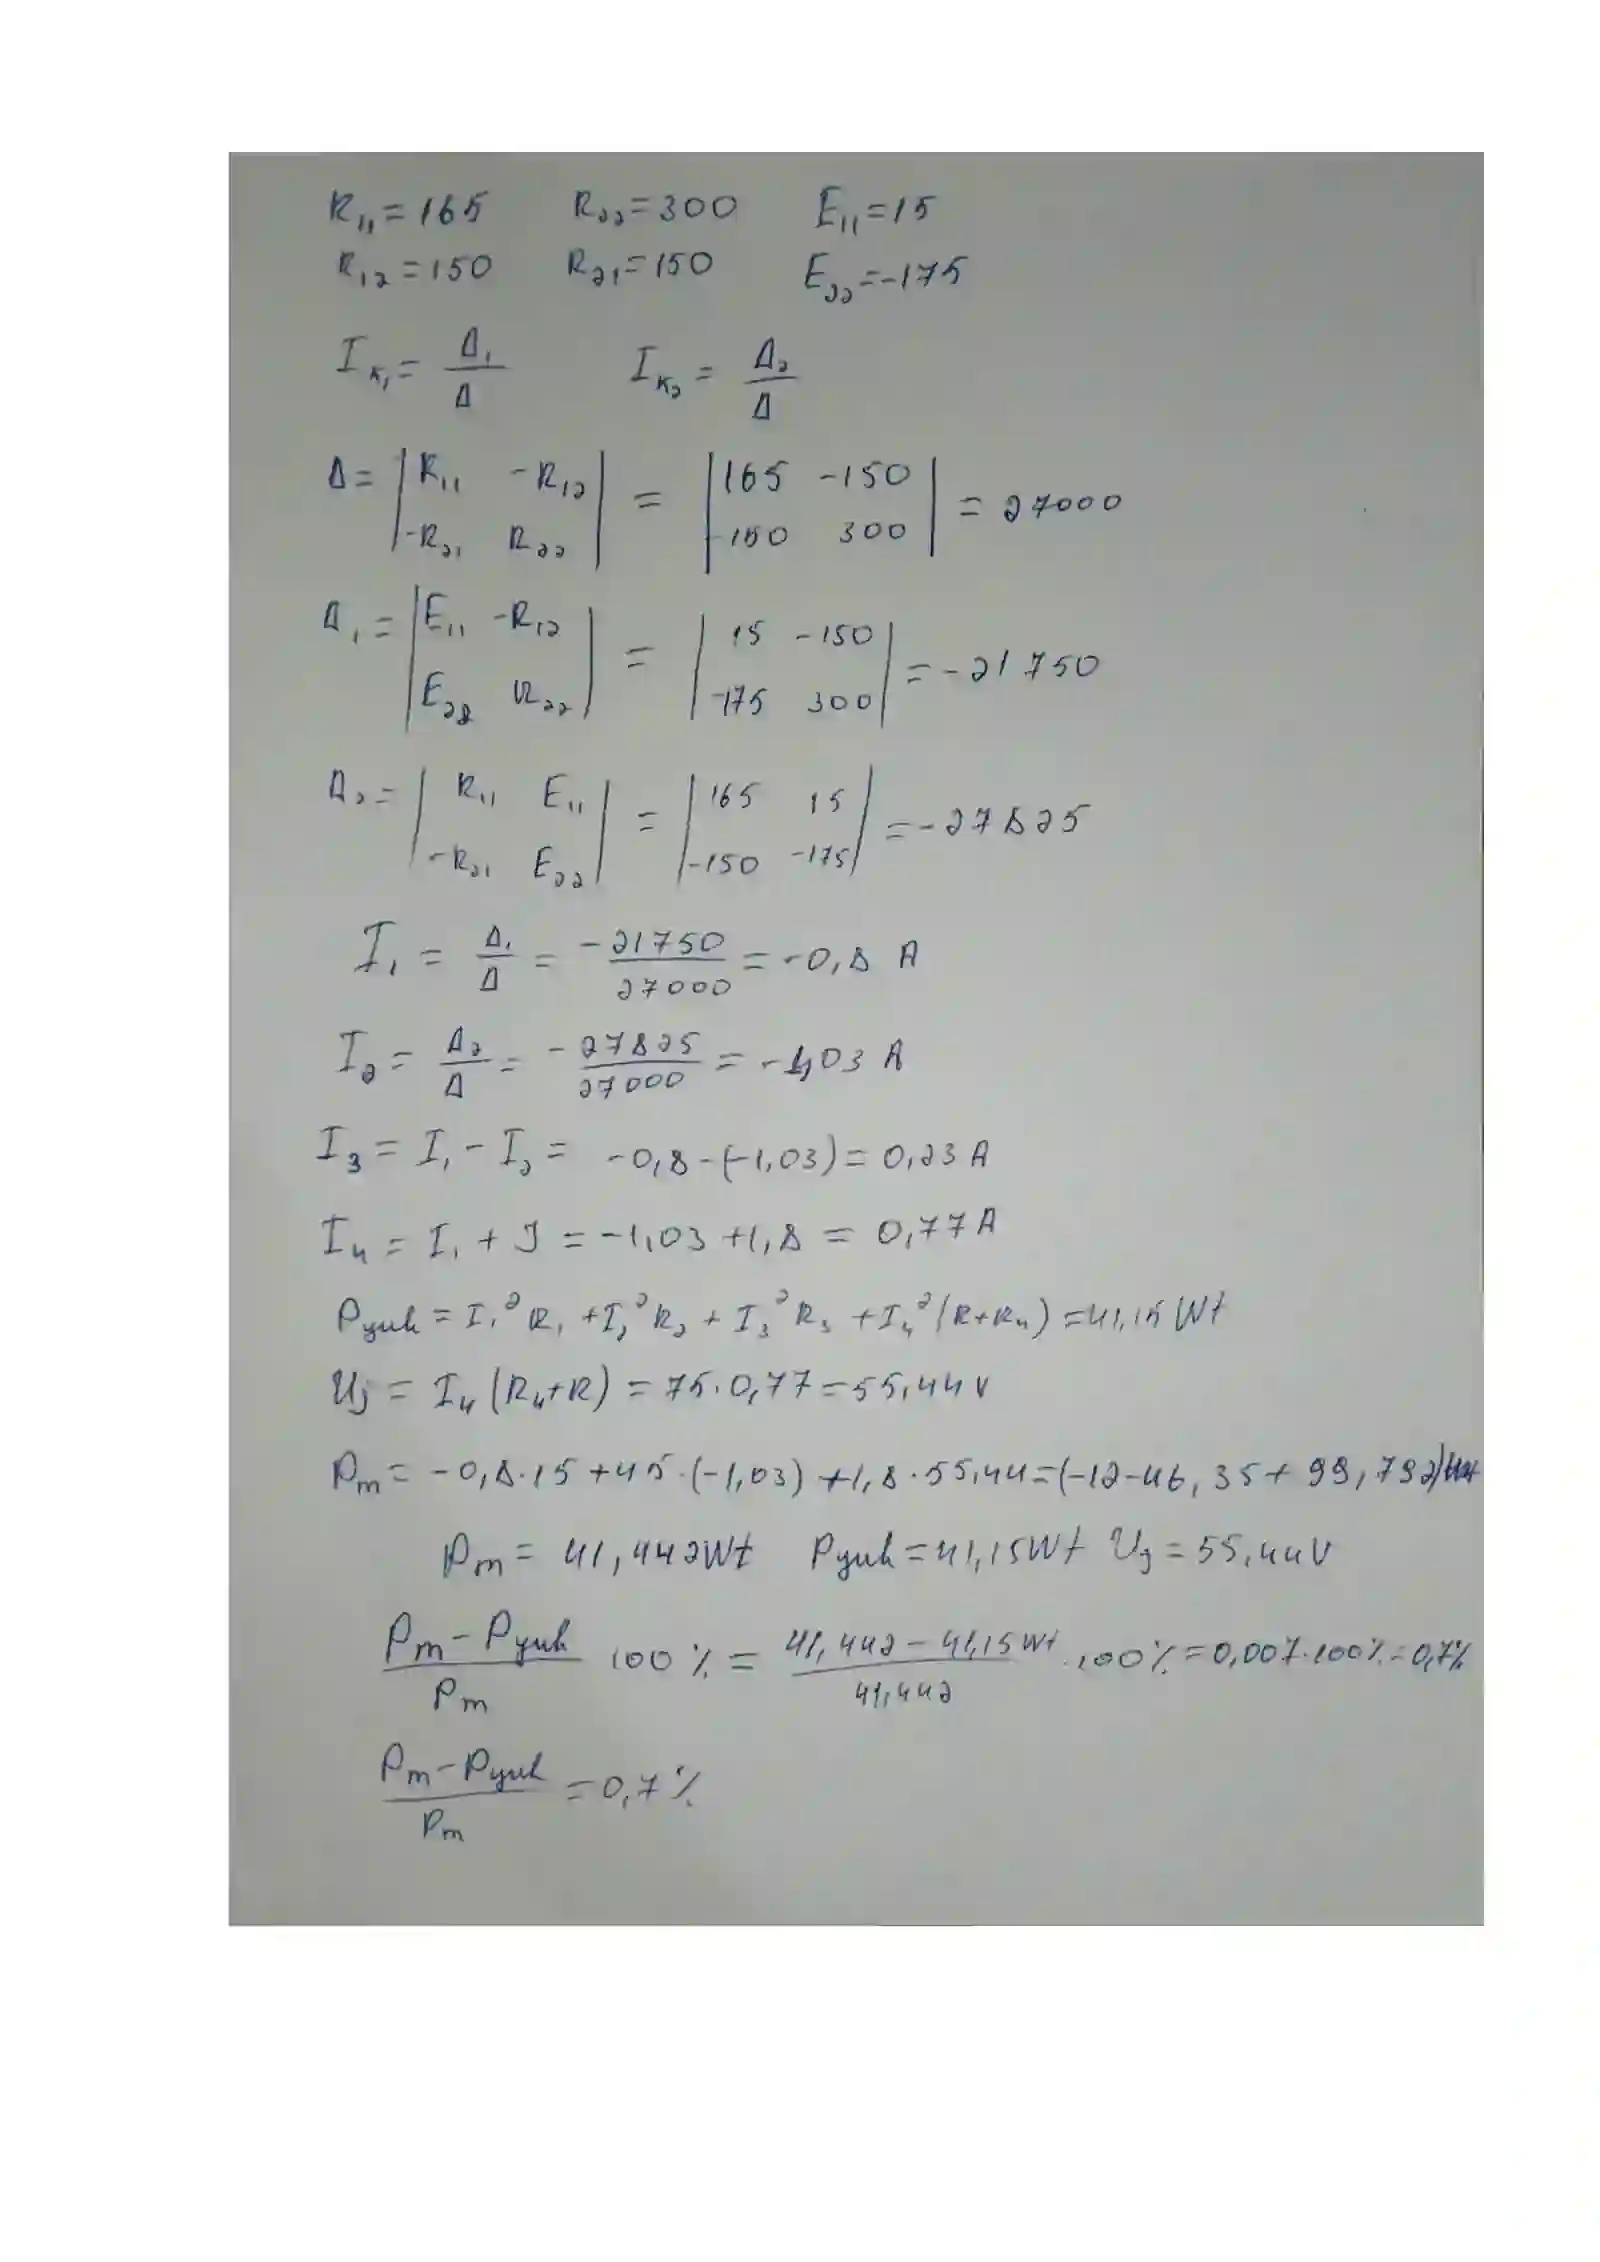 R₁₁=165 R₂₂=300 E₁₁=15
R₁₂=150 R₂₁=150 E₂₂=-175
Iₖ₁= Δ₁/Δ Iₖ₂= Δ₂/Δ
Δ= |R₁₁ -R₁₂; -R₂₁ R₂₂| = |165 -150; -150 300| = 27000
Δ₁= |E₁₁ -R₁₂; E₂₂ R₂₂| = |15 -150; -175 300| =-21750
Δ₂= |R₁₁ E₁₁; -R₂₁ E₂₂| = |165 15; -150 -175| =-27825
I₁ = Δ₁/Δ = -21750/27000 = -0,8 A
I₂ = Δ₂/Δ = -27825/27000 = -1,03 A
I₃ = I₁ - I₂ = -0,8-(-1,03)= 0,23 A
I₄ = I₁ + J = -1,03 +1,8 = 0,77A
Pyuk = I₁² R₁ +I₂² R₂ + I₃² R₃ +I₄² (R+R₄) =41,15 Wt
Uj = I₄ (R₄+R) = 75·0,77=55,44 V
Pm= -0,8·15 +45·(-1,03) +1,8·55,44=(-12-46,35+99,792)Wt
Pm = 41,442Wt Pyuk =41,15Wt Uj =55,44V
Pm-Pyuk/Pm 100% = 41,442-41,15Wt/41,442 ·100%=0,007·100%=0,7%
Pm-Pyuk/Pm =0,7%